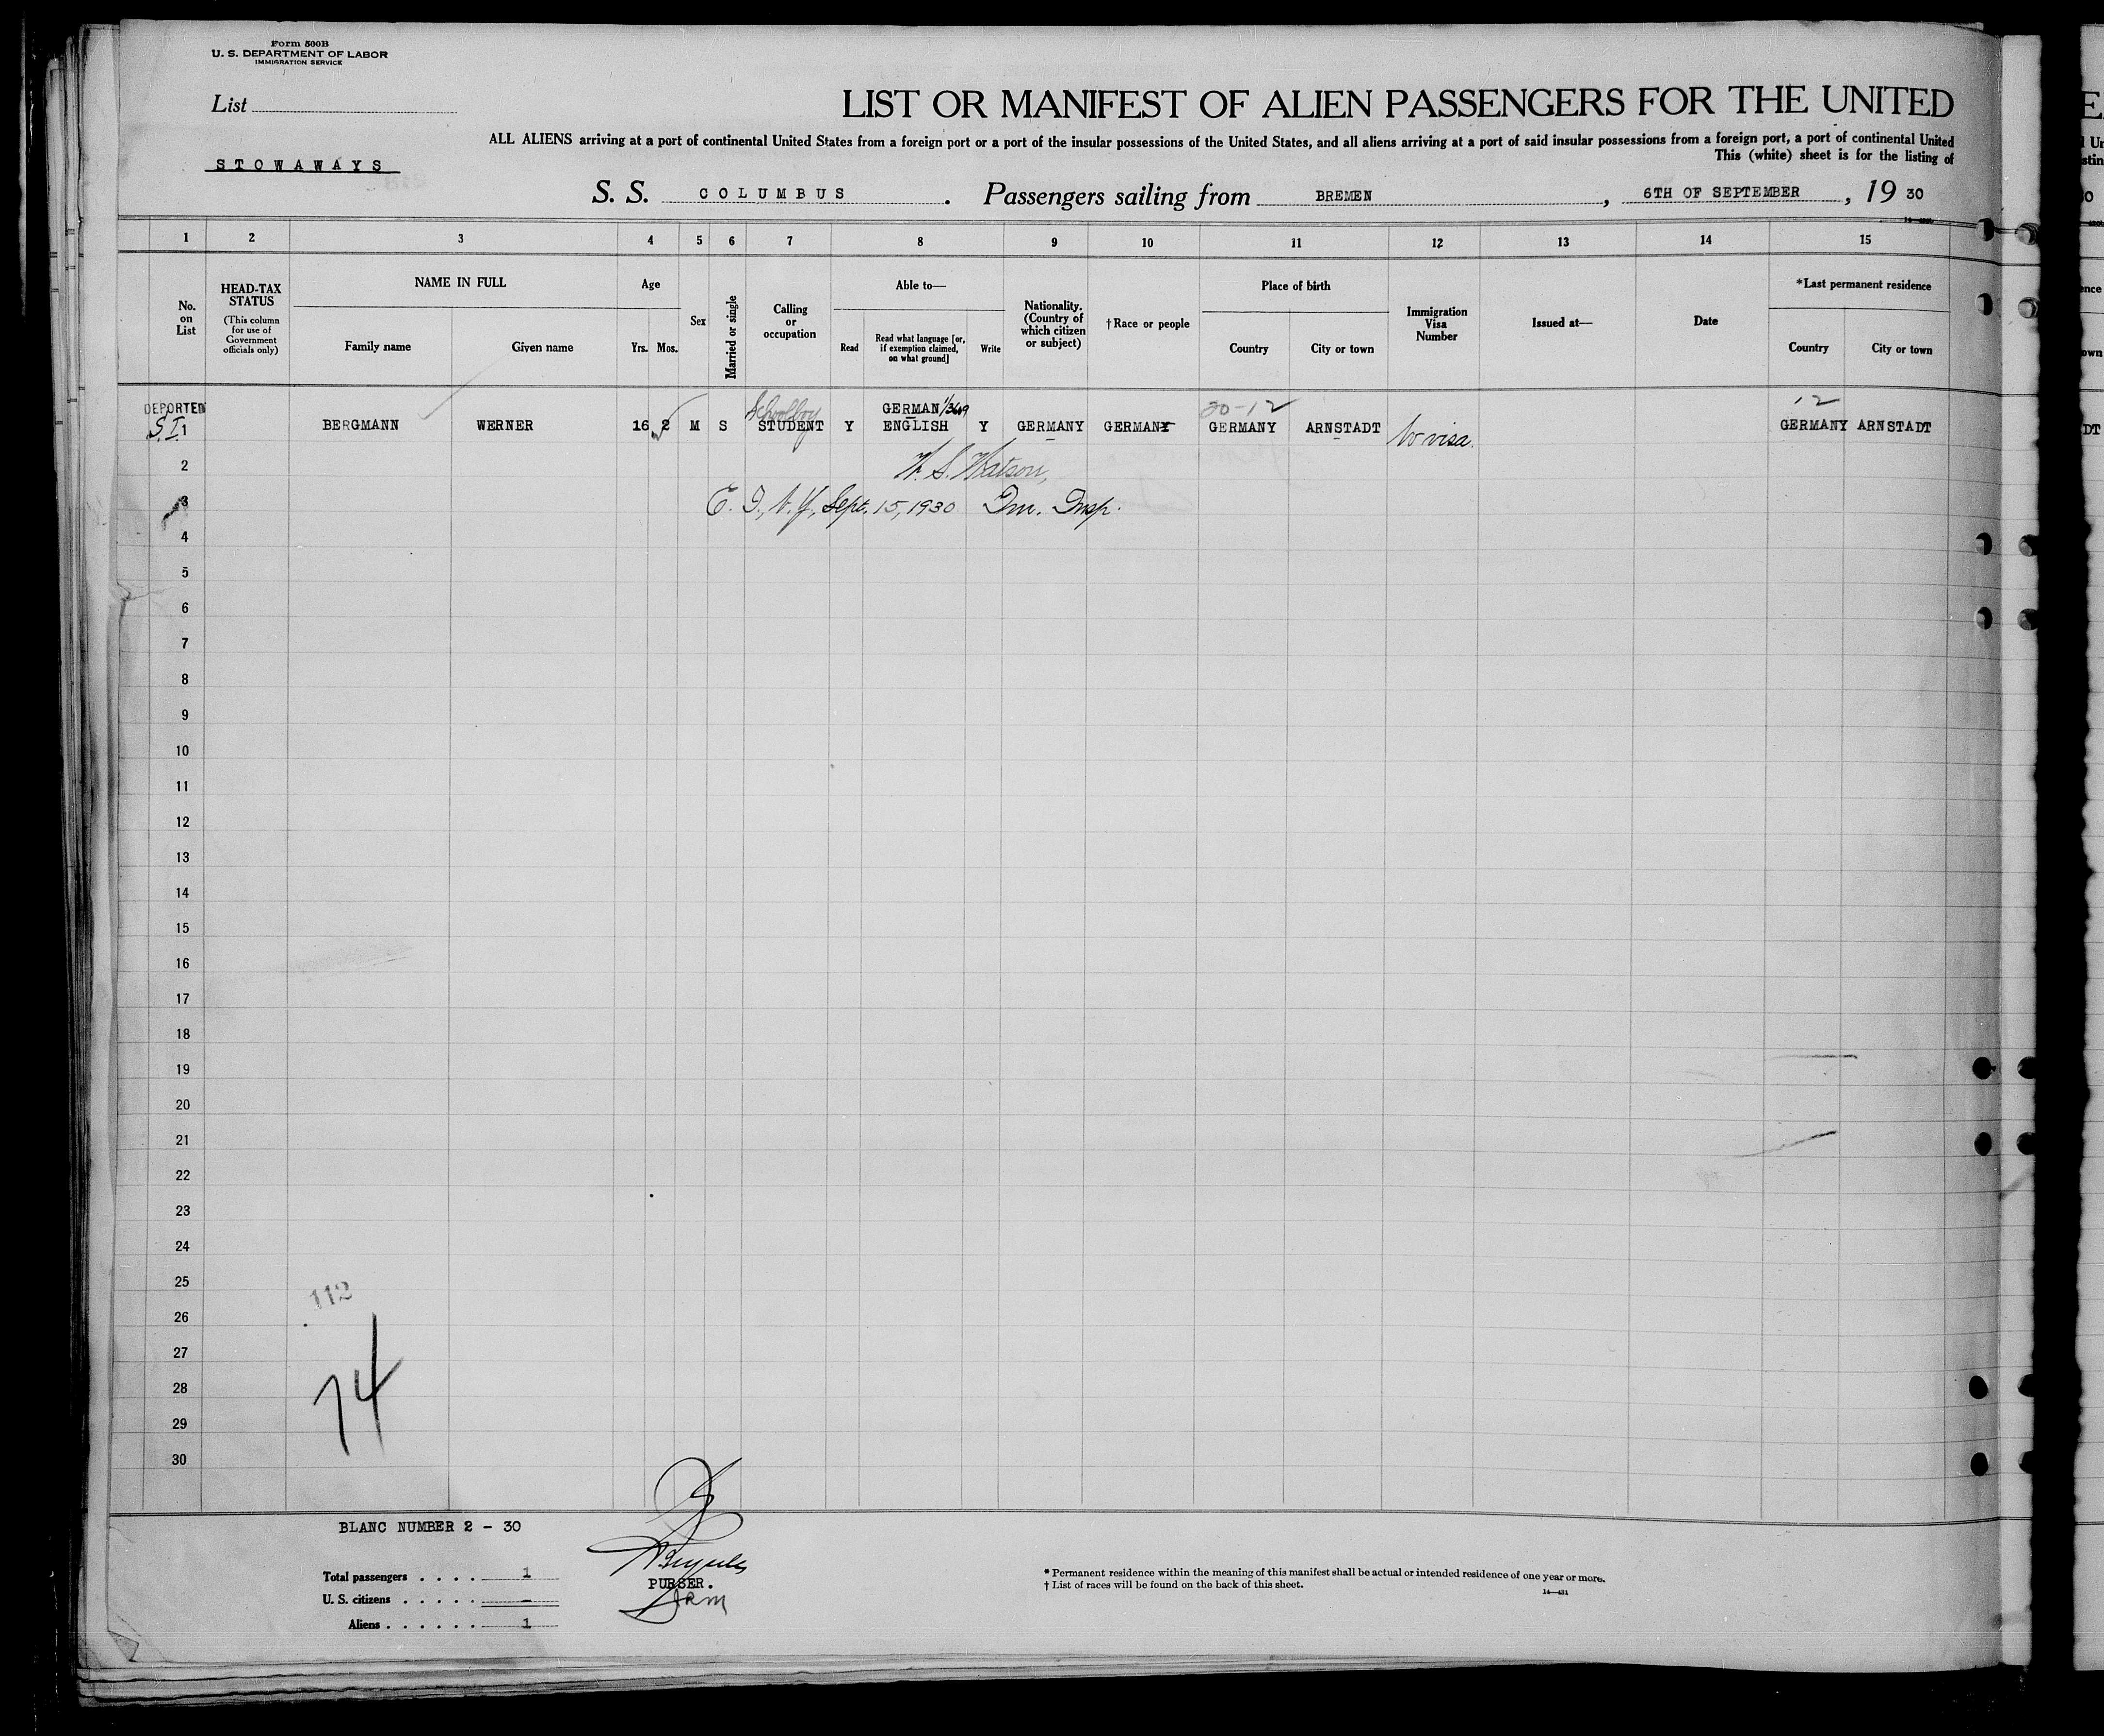 Form 500B
U. S. DEPARTMENT OF LABOR
IMMIGRATION SERVICE
List
STOWAWAYS
LIST OR MANIFEST OF ALIEN PASSENGERS FOR THE UNITED
ALL ALIENS arriving at a port of continental United States from a foreign port or a port of the insular possessions of the United States, and all aliens arriving at a port of said insular possessions from a foreign port, a port of continental United
This (white) sheet is for the listing of
S. S. COLUMBUS. Passengers sailing from BREMEN, 6TH OF SEPTEMBER, 19 30
1 2 3 4 5 6 7 8 9 10 11 12 13 14 15
No. on List
HEAD-TAX STATUS (This column for use of Government officials only)
NAME IN FULL
Family name Given name
Age
Yrs. Mos.
Sex
Married or single
Calling or occupation
Able to—
Read
Read what language [or, if exemption claimed, on what ground]
Write
Nationality. (Country of which citizen or subject)
†Race or people
Place of birth
Country City or town
Immigration Visa Number
Issued at—
Date
*Last permanent residence
Country City or town
DEPORTED Schoolboy GERMAN 20-12 12
S.I. 1 BERGMANN WERNER 16 2 M S STUDENT Y ENGLISH Y GERMANY GERMAN GERMANY ARNSTADT No visa. GERMANY ARNSTADT
2 W. S. Watson,
3 E. I., N.Y., Sept. 15, 1930 Im. Insp.
4
5
6
7
8
9
10
11
12
13
14
15
16
17
18
19
20
21
22
23
24
25
112
26
27
74
28
29
30
BLANC NUMBER 2 - 30
Total passengers . . . . 1
U. S. citizens . . . . . —
Aliens . . . . . . 1
PURSER.
* Permanent residence within the meaning of this manifest shall be actual or intended residence of one year or more.
† List of races will be found on the back of this sheet.